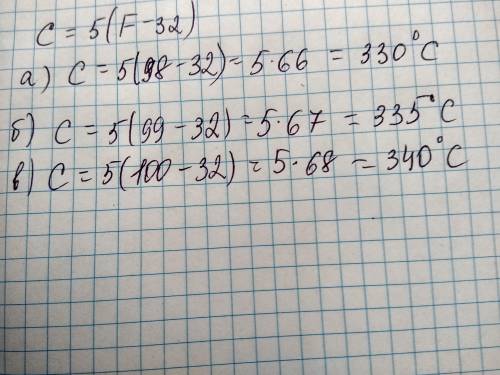 C = 5(F-32)
а) C = 5(98-32)= 5·66 = 330°C
б) C = 5(99-32)=5·67 = 335°C
в) C = 5(100-32)= 5·68 = 340°C